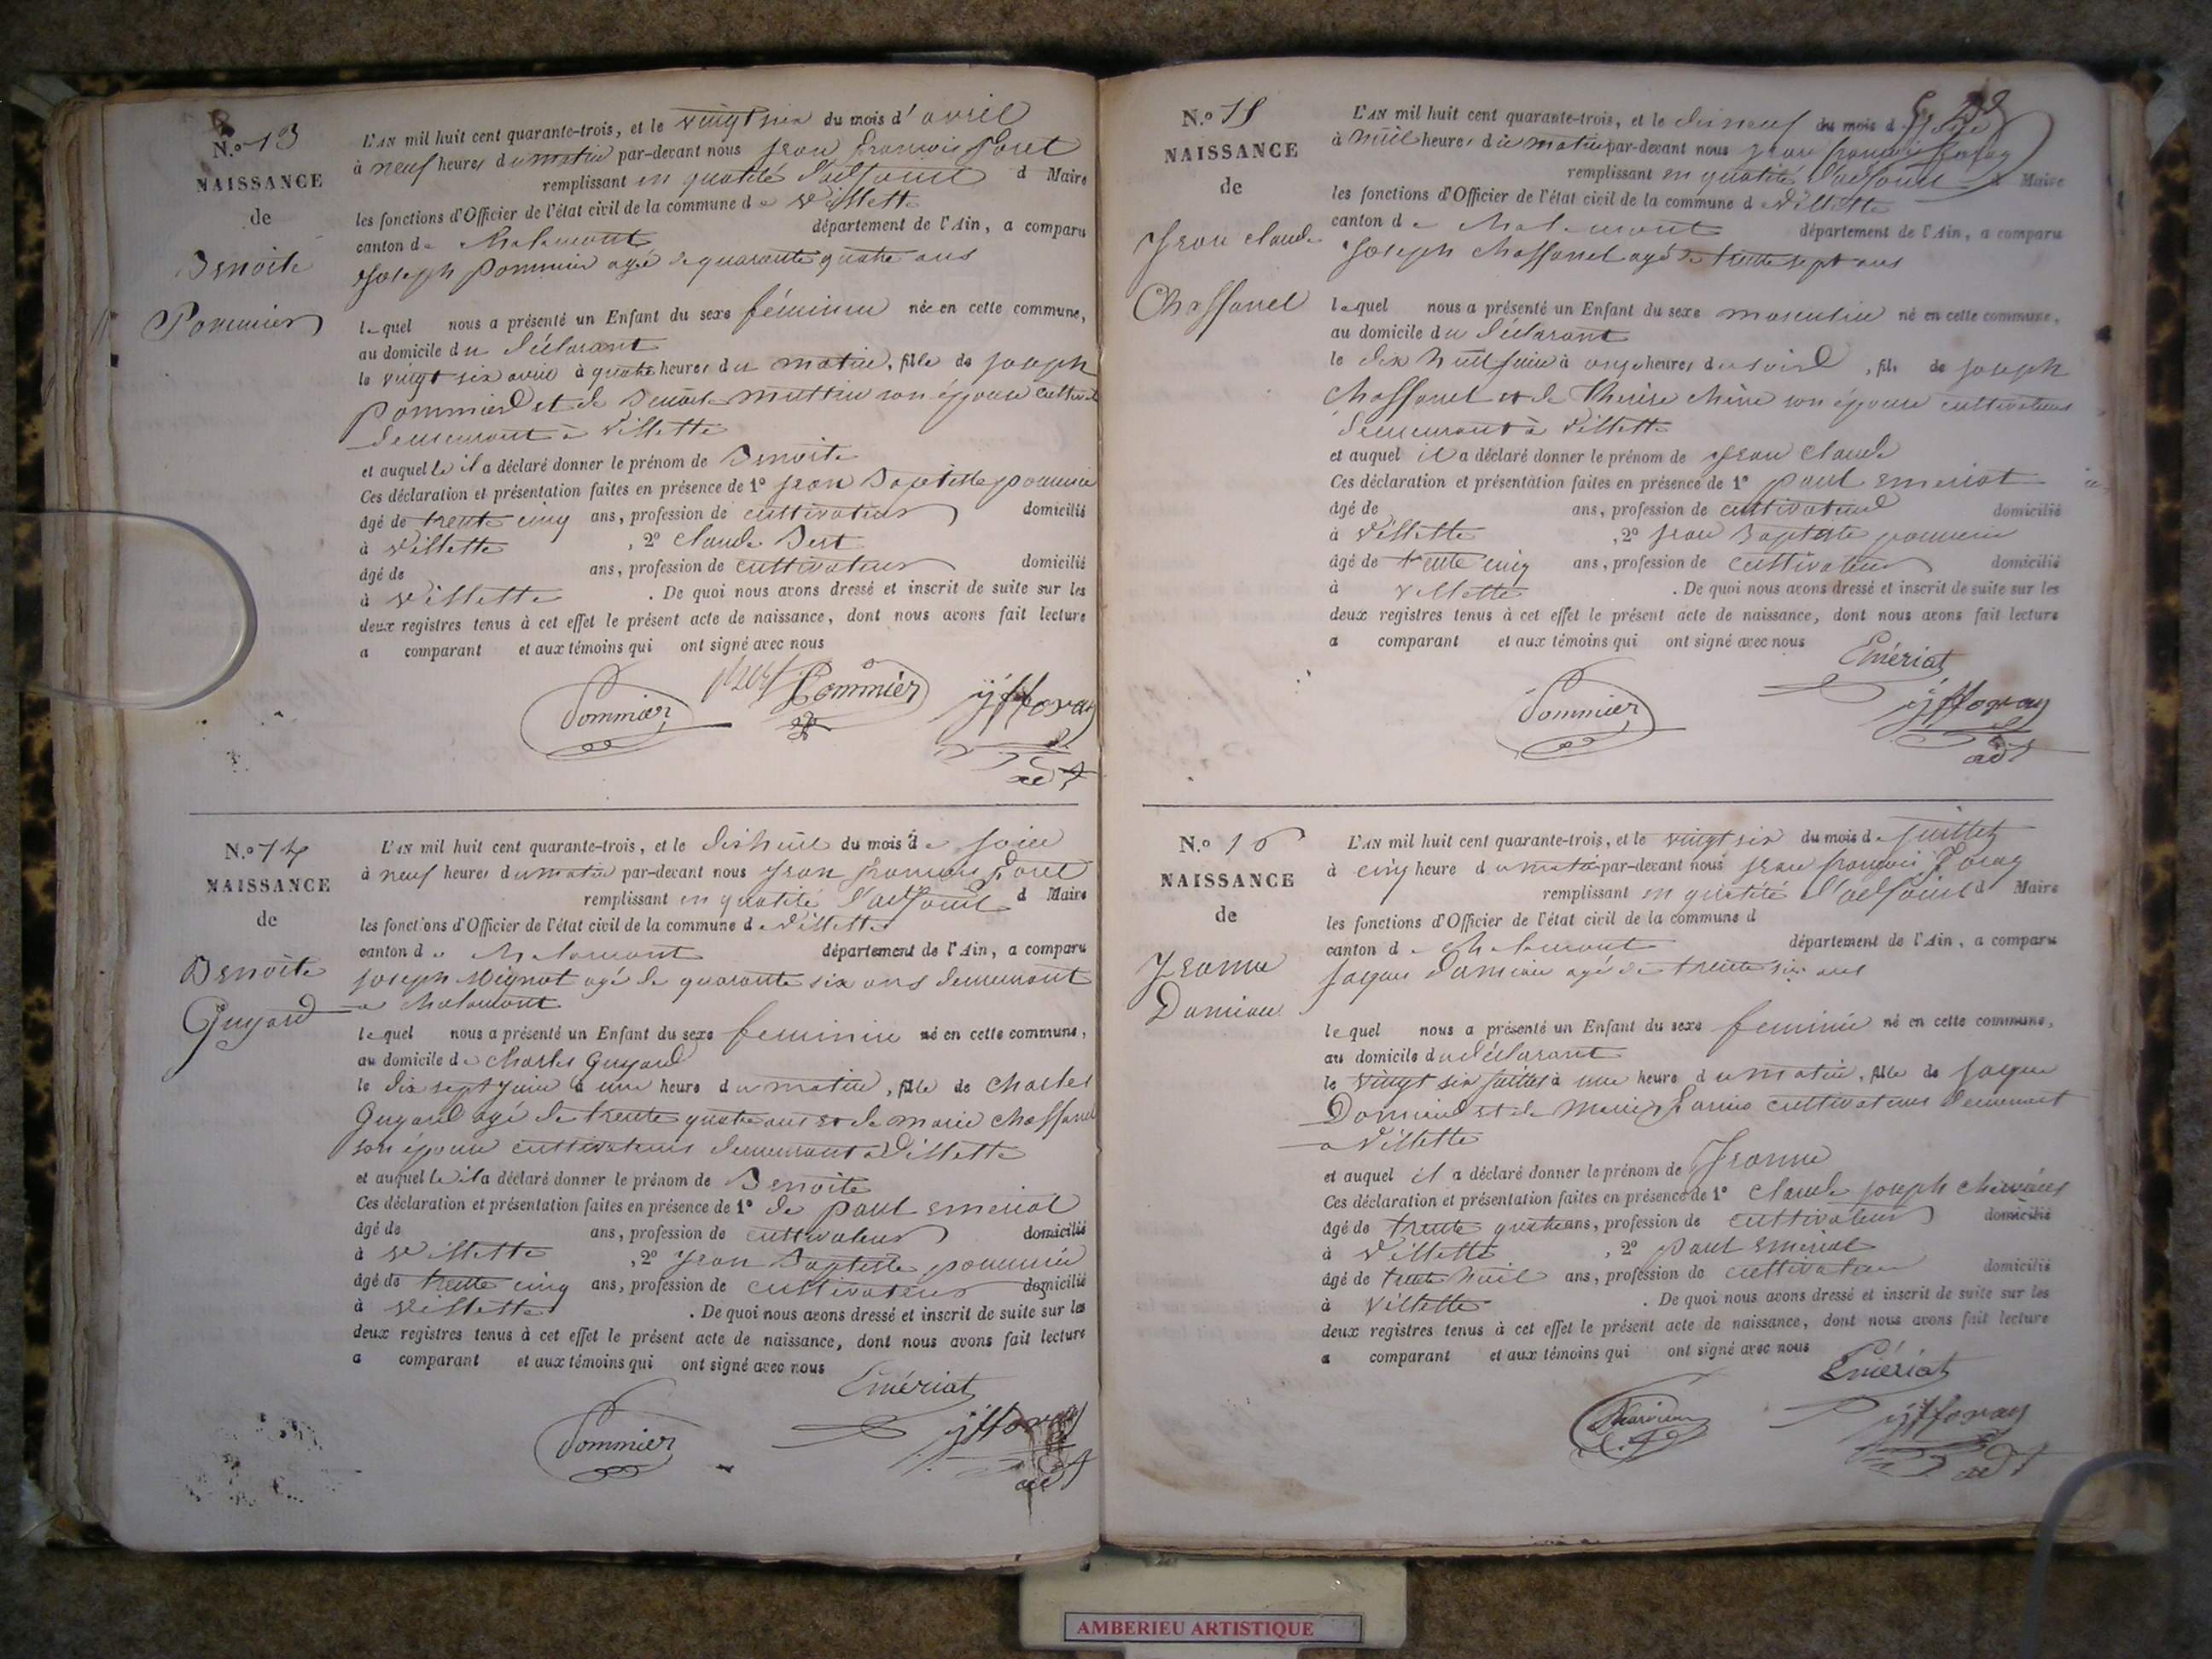 N.º 13
NAISSANCE
de
Benoite
Pommier
L'AN mil huit cent quarante-trois, et le vingt six du mois d'avril
à neuf heures du matin par-devant nous Jean François Foret
remplissant en qualité d'adjoint d Maire
les fonctions d'Officier de l'état civil de la commune de Villette
canton de Chalamont département de l'Ain, a comparu
Joseph Pommier agé de quarante quatre ans
lequel nous a présenté un Enfant du sexe féminin née en cette commune,
au domicile du déclarant
le vingt six avril à quatre heures du matin, fille de joseph
Pommier et de Benoite Muttin son épouse cultivat
demeurant à Villette
et auquelle il a déclaré donner le prénom de Benoite
Ces déclaration et présentation faites en présence de 1º jean Baptiste pommier
âgé de trente cinq ans, profession de cultivateur domicilié
à Villette , 2º Claude
âgé de ans, profession de cultivateur domicilié
à Villette . De quoi nous avons dressé et inscrit de suite sur les
deux registres tenus à cet effet le présent acte de naissance, dont nous avons fait lecture
a comparant et aux témoins qui ont signé avec nous
Pommier Pommier jfforay
adt
N.º 14
NAISSANCE
de
Benoite
Guyard
L'AN mil huit cent quarante-trois, et le dishuit du mois de juin
à neuf heures du matin par-devant nous Jean François Foret
remplissant en qualité d'adjoint d Maire
les fonctions d'Officier de l'état civil de la commune de Villette
canton de Chalamont département de l'Ain, a comparu
joseph Mignat agé de quarante six ans demeurant
a Chalamont
lequel nous a présenté un Enfant du sexe feminin né en cette commune,
au domicile de Charles Guyard
le dix sept juin à une heure du matin, fille de Charles
Guyard agé de trente quatre ans et de marie Chassanel
son épouse cultivateurs demeurant a Villette
et auquelle il a déclaré donner le prénom de Benoite
Ces déclaration et présentation faites en présence de 1º de paul emeriat
âgé de ans, profession de cultivateur domicilié
à Villette , 2º Jean Baptiste pommier
âgé de trente cinq ans, profession de cultivateur domicilié
à Villette . De quoi nous avons dressé et inscrit de suite sur les
deux registres tenus à cet effet le présent acte de naissance, dont nous avons fait lecture
a comparant et aux témoins qui ont signé avec nous
Emériat
Pommier jfforay
adt
N.º 15
NAISSANCE
de
Jean Claude
Chassanel
L'AN mil huit cent quarante-trois, et le disneuf du mois d juin
à huit heures du matin par-devant nous jean françois foray
remplissant en qualité d'adjoint d Maire
les fonctions d'Officier de l'état civil de la commune d Villette
canton de Chalamont département de l'Ain, a comparu
Joseph Chassanel agé de trente sept ans
lequel nous a présenté un Enfant du sexe masculin né en cette commune,
au domicile du déclarant
le dix huit juin à onze heures du soir , fils de joseph
Chassanel et de Thérèse Chêne son épouse cultivateurs
demeurant à Villette
et auquel il a déclaré donner le prénom de Jean Claude
Ces déclaration et présentation faites en présence de 1º paul emeriat
âgé de ans, profession de cultivateur domicilié
à Villette , 2º jean Baptiste pommier
âgé de trente cinq ans, profession de cultivateur domicilié
à Villette . De quoi nous avons dressé et inscrit de suite sur les
deux registres tenus à cet effet le présent acte de naissance, dont nous avons fait lecture
a comparant et aux témoins qui ont signé avec nous
Emériat
Pommier jfforay
adt
N.º 16
NAISSANCE
de
Jeanne
Damian
L'AN mil huit cent quarante-trois, et le vingt six du mois de juillet
à cinq heure du matin par-devant nous jean françois Foray
remplissant en qualité d'adjoint d Maire
les fonctions d'Officier de l'état civil de la commune d
canton de Chalamont département de l'Ain, a comparu
Jaques Damian agé de trente six ans
lequel nous a présenté un Enfant du sexe feminin né en cette commune,
au domicile du déclarant
le vingt six juillet à une heure du matin, fille de jaque
Damian et de Marie cultivateurs demeurant
a Villette
et auquel il a déclaré donner le prénom de Jeanne
Ces déclaration et présentation faites en présence de 1º Claude joseph
âgé de trente quatre ans, profession de cultivateur domicilié
à Villette , 2º paul emeriat
âgé de trente huit ans, profession de cultivateur domicilié
à Villette . De quoi nous avons dressé et inscrit de suite sur les
deux registres tenus à cet effet le présent acte de naissance, dont nous avons fait lecture
a comparant et aux témoins qui ont signé avec nous
Emériat
jfforay
adt
AMBERIEU ARTISTIQUE